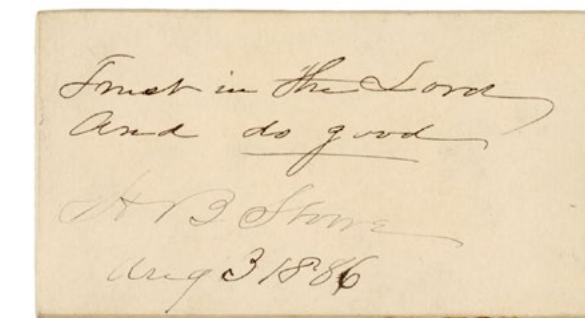 Trust in the Lord
And do good
H B Stowe
Aug 3 1886